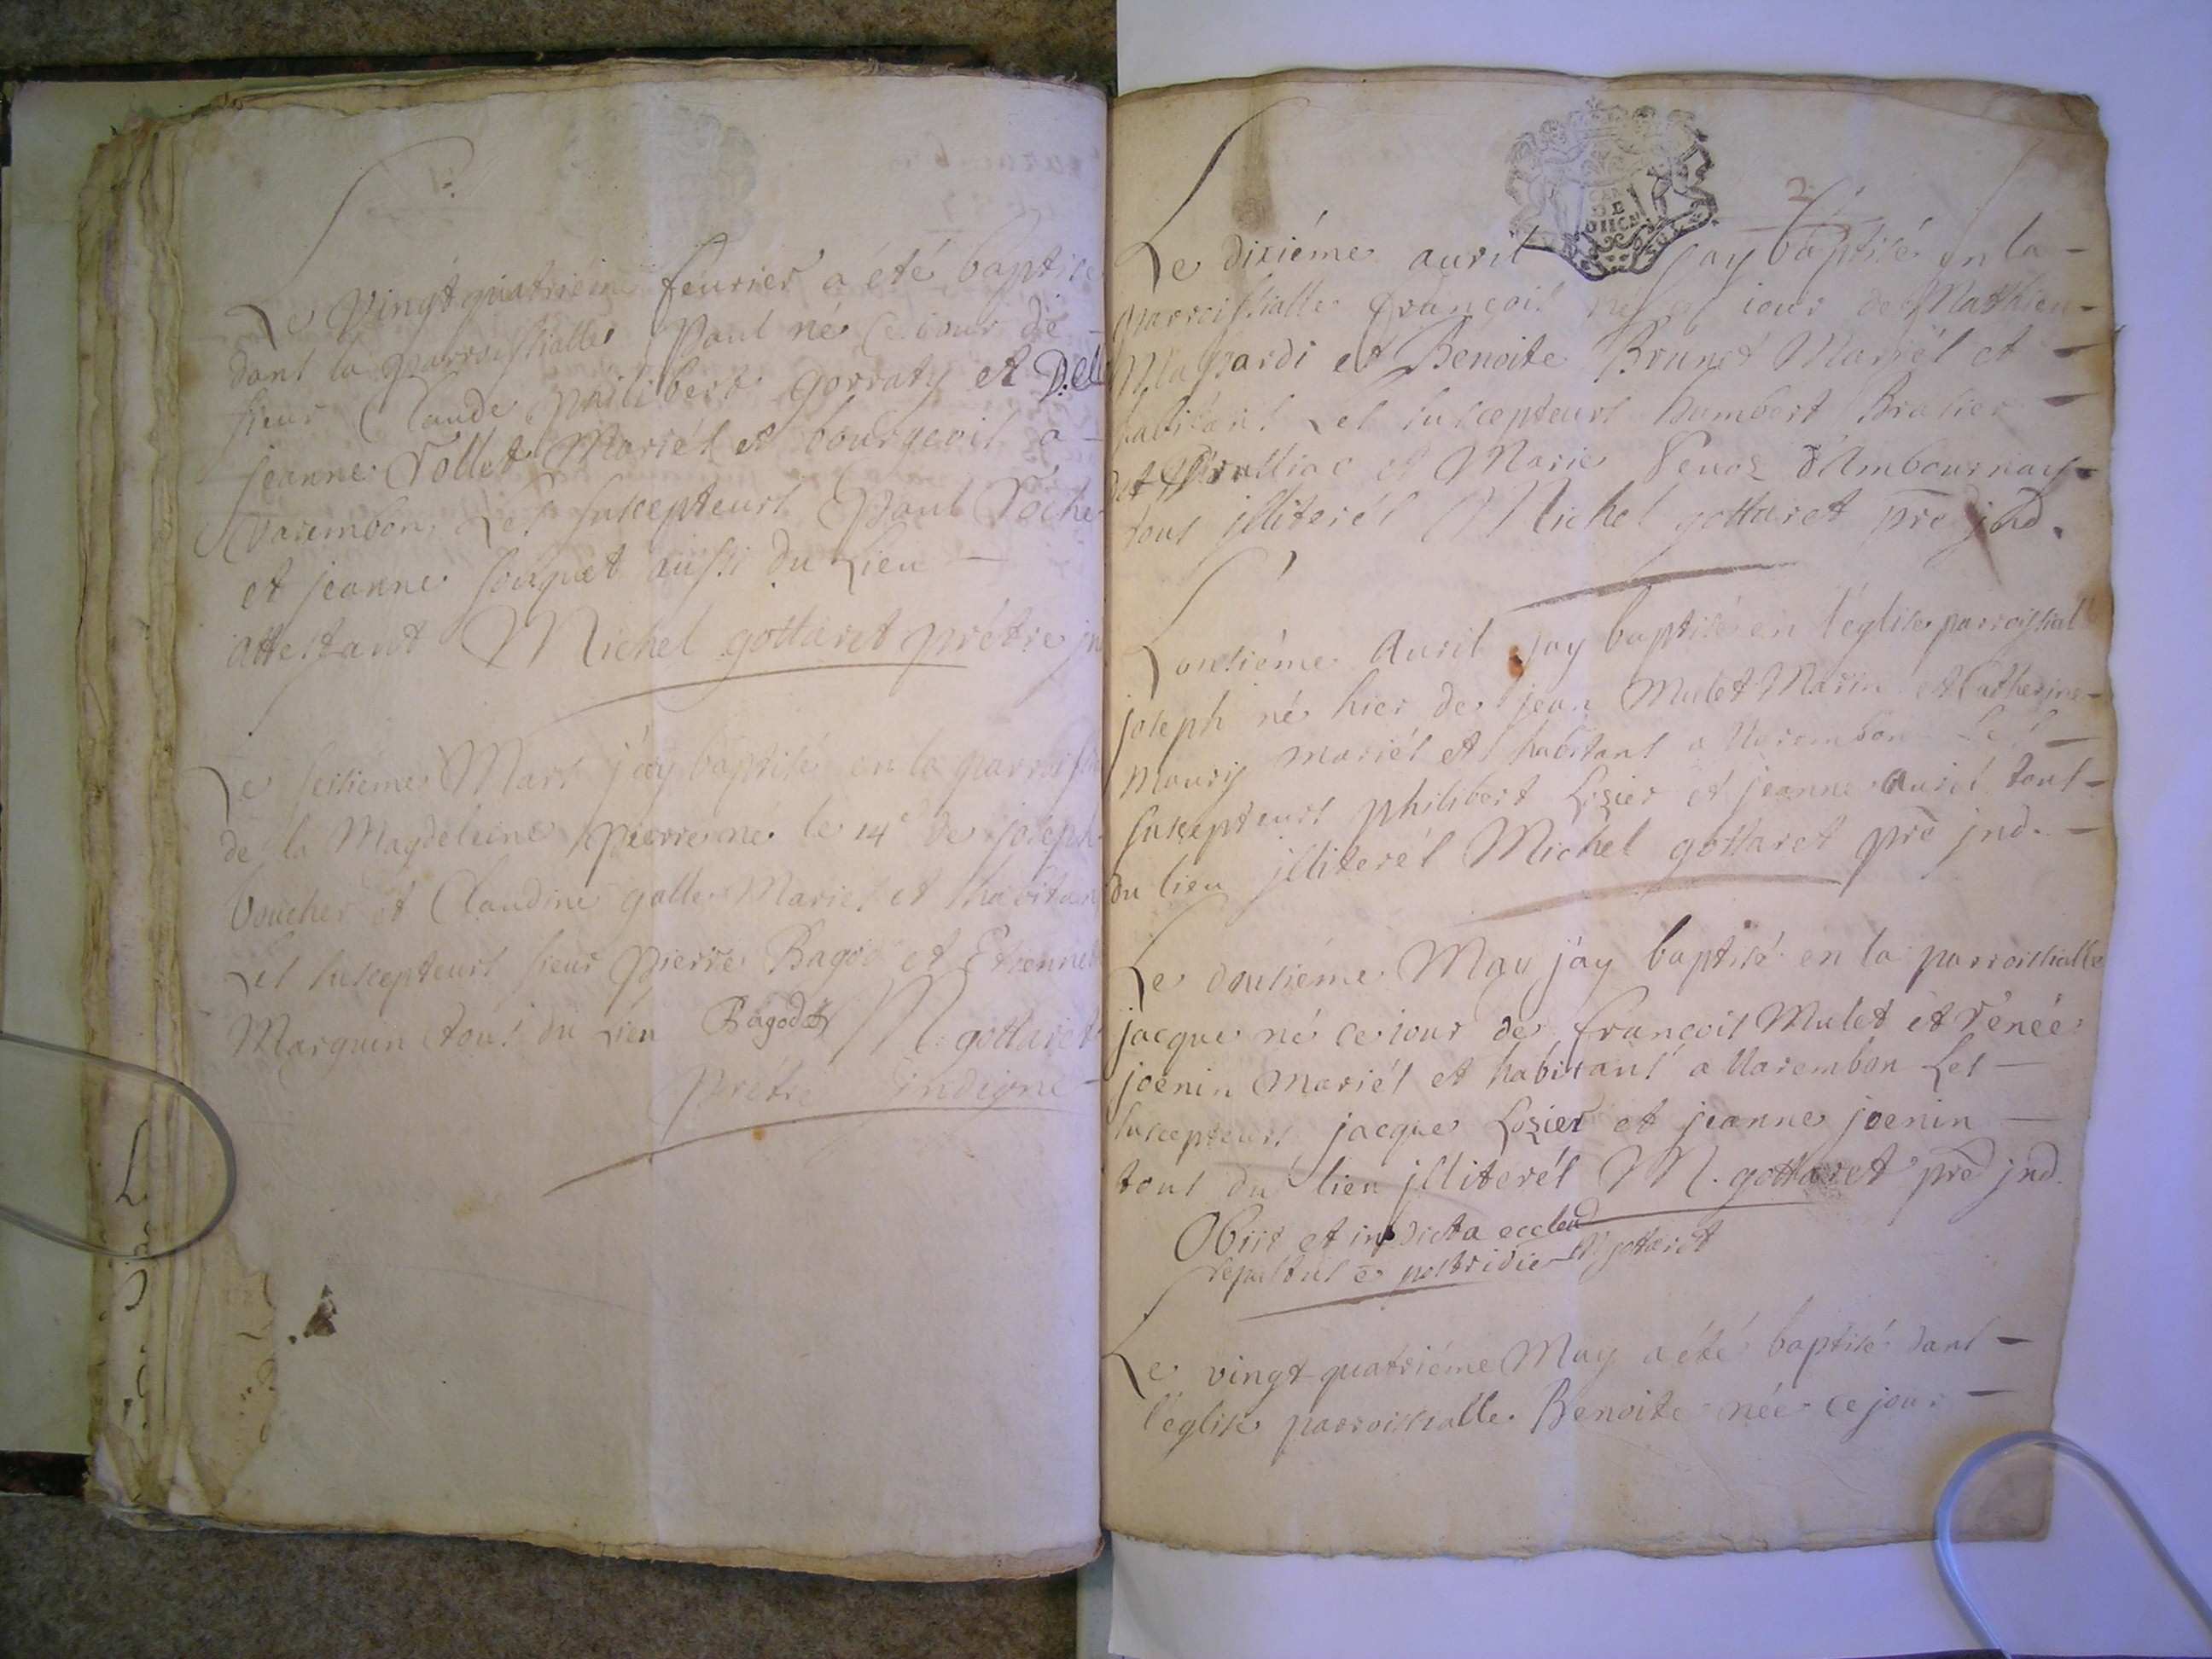 Le Vingtquatrieme feurier a eté baptise
dans la parroissialle Paul né ce iour de
sieur Claude philibert Gorraty et D.elle
jeanne Tollet Mariés et bourgeois a
Varembon Les suscepteurs Paul
et jeanne aussi du Lieu
attestant Michel gottaret prétre
Le sesiéme Mars j'ay baptisé en la parroissi
de la Magdeleine pierre né le 14e de joseph
boucher et Claudine galle Mariés et habitan
Les suscepteurs sieur pierre Bagod et Etienne
Marguin tous du Lieu Bagodet M. gottaret
prétre indigne
2
Le dixiéme auril jay baptisé en la
parroissialle françois né ce iour de Mathieu
et Benoite Brunet Mariés et
habitans Les suscepteurs humbert Brasier
et Marie d'Ambournay
tous jlliterés Michel gottaret pre jnd.
L'onsiéme Auril jay baptisé en l'eglise parroissiall
joseph né hier de jean Mulet Marin et Catherine
Maurij mariés et habitans a Varembon Les
suscepteurs philibert Losier et jeanne Auril tous
du lieu jlliterés Michel gottaret pre jnd.
Le dousiéme May jáy baptisé en la parroissialle
jacque né ce iour de françois Mulet et renée
joenin Mariés et habitans a Varembon Les
suscepteurs jacque Losier et jeanne joenin
tous du lieu jlliterés M. gottaret pre jnd.
Obiit et in dicta
sepultus e postridie M gottaret
Le vingt-quatriéme May a été baptisé dans
l'église parroissialle Benoite née ce jour